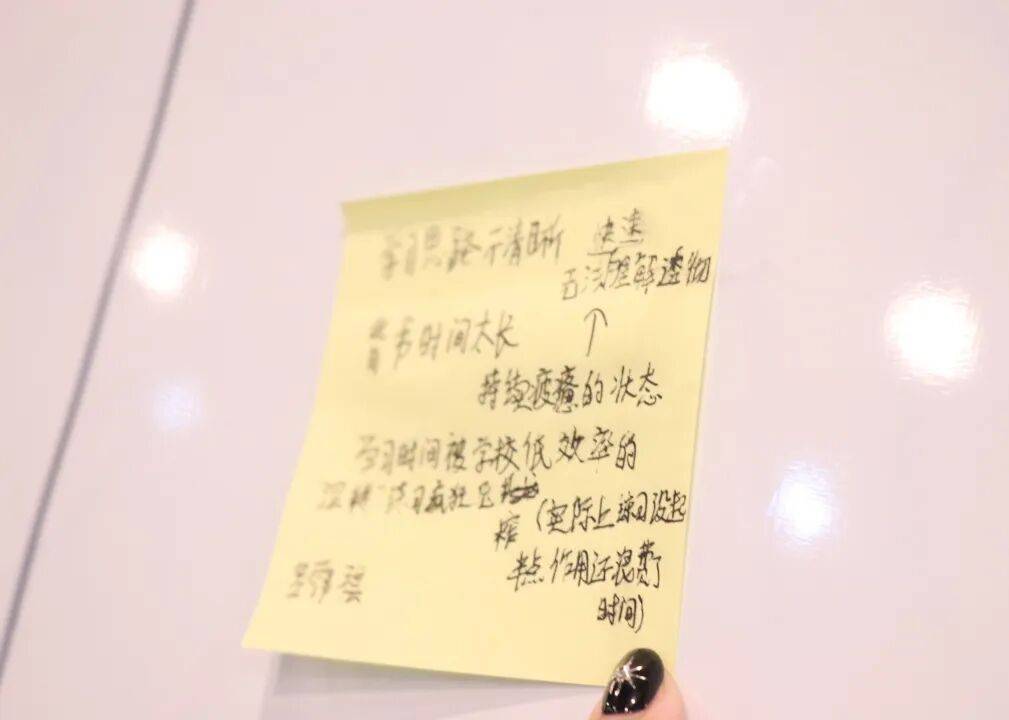 学习思路不清晰 快速
无法理解透彻
↑
背书时间太长
持续疲惫的状态
学习时间被学校低效率的
练习疯狂
榨(实际上练习没起
半点作用还浪费了
时间)